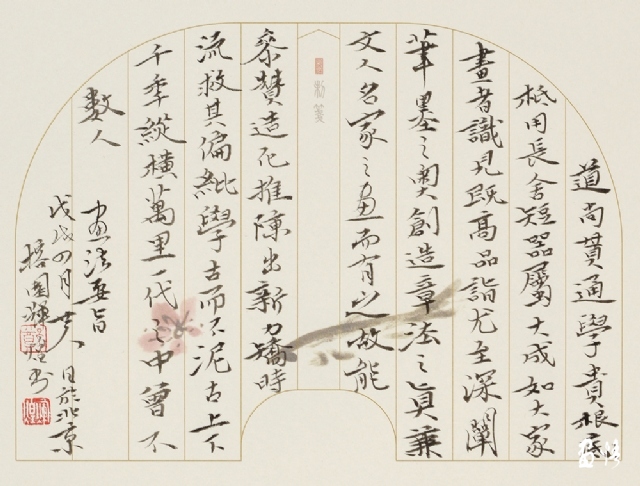 道尚貫通學貴根
柢用長舍短器屬大成如大家
畫者識見既高品詣尤至深闡
筆墨之奧創造章法之真兼
文人名家之畫而有之故能
參贊造化推陳出新力矯時
流救其偏紕學古而不泥古上下
千季縱橫萬里一代之中曾不
數人
画法要旨
戊戌四月廿八日於北京